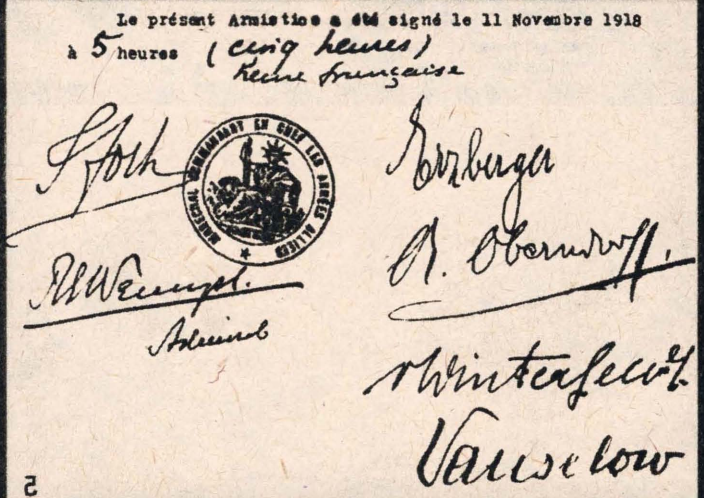 Le présent Armistice a été signé le 11 Novembre 1918
à 5 heures (cinq heures)
heure française
F. Foch
MARÉCHAL COMMANDANT EN CHEF LES ARMÉES ALLIÉES
R.E. Wemyss.
Admiral
Erzberger
A. Oberndorff.
v Winterfeldt.
Vanselow
5